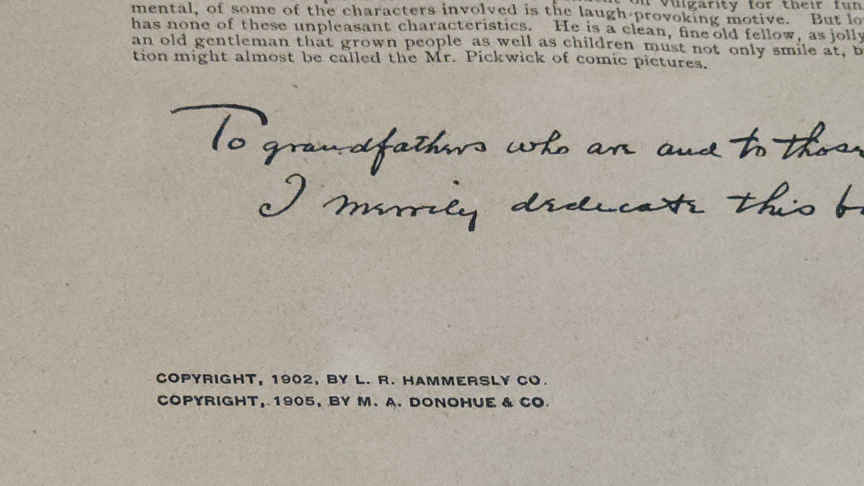 mental, of some of the characters involved is the laugh-provoking motive. But
has none of these unpleasant characteristics. He is a clean, fine old fellow, as jolly
an old gentleman that grown people as well as children must not only smile at,
tion might almost be called the Mr. Pickwick of comic pictures.
To grandfathers who are and to those
I merrily dedicate this
COPYRIGHT, 1902, BY L. R. HAMMERSLY CO.
COPYRIGHT, 1905, BY M. A. DONOHUE & CO.